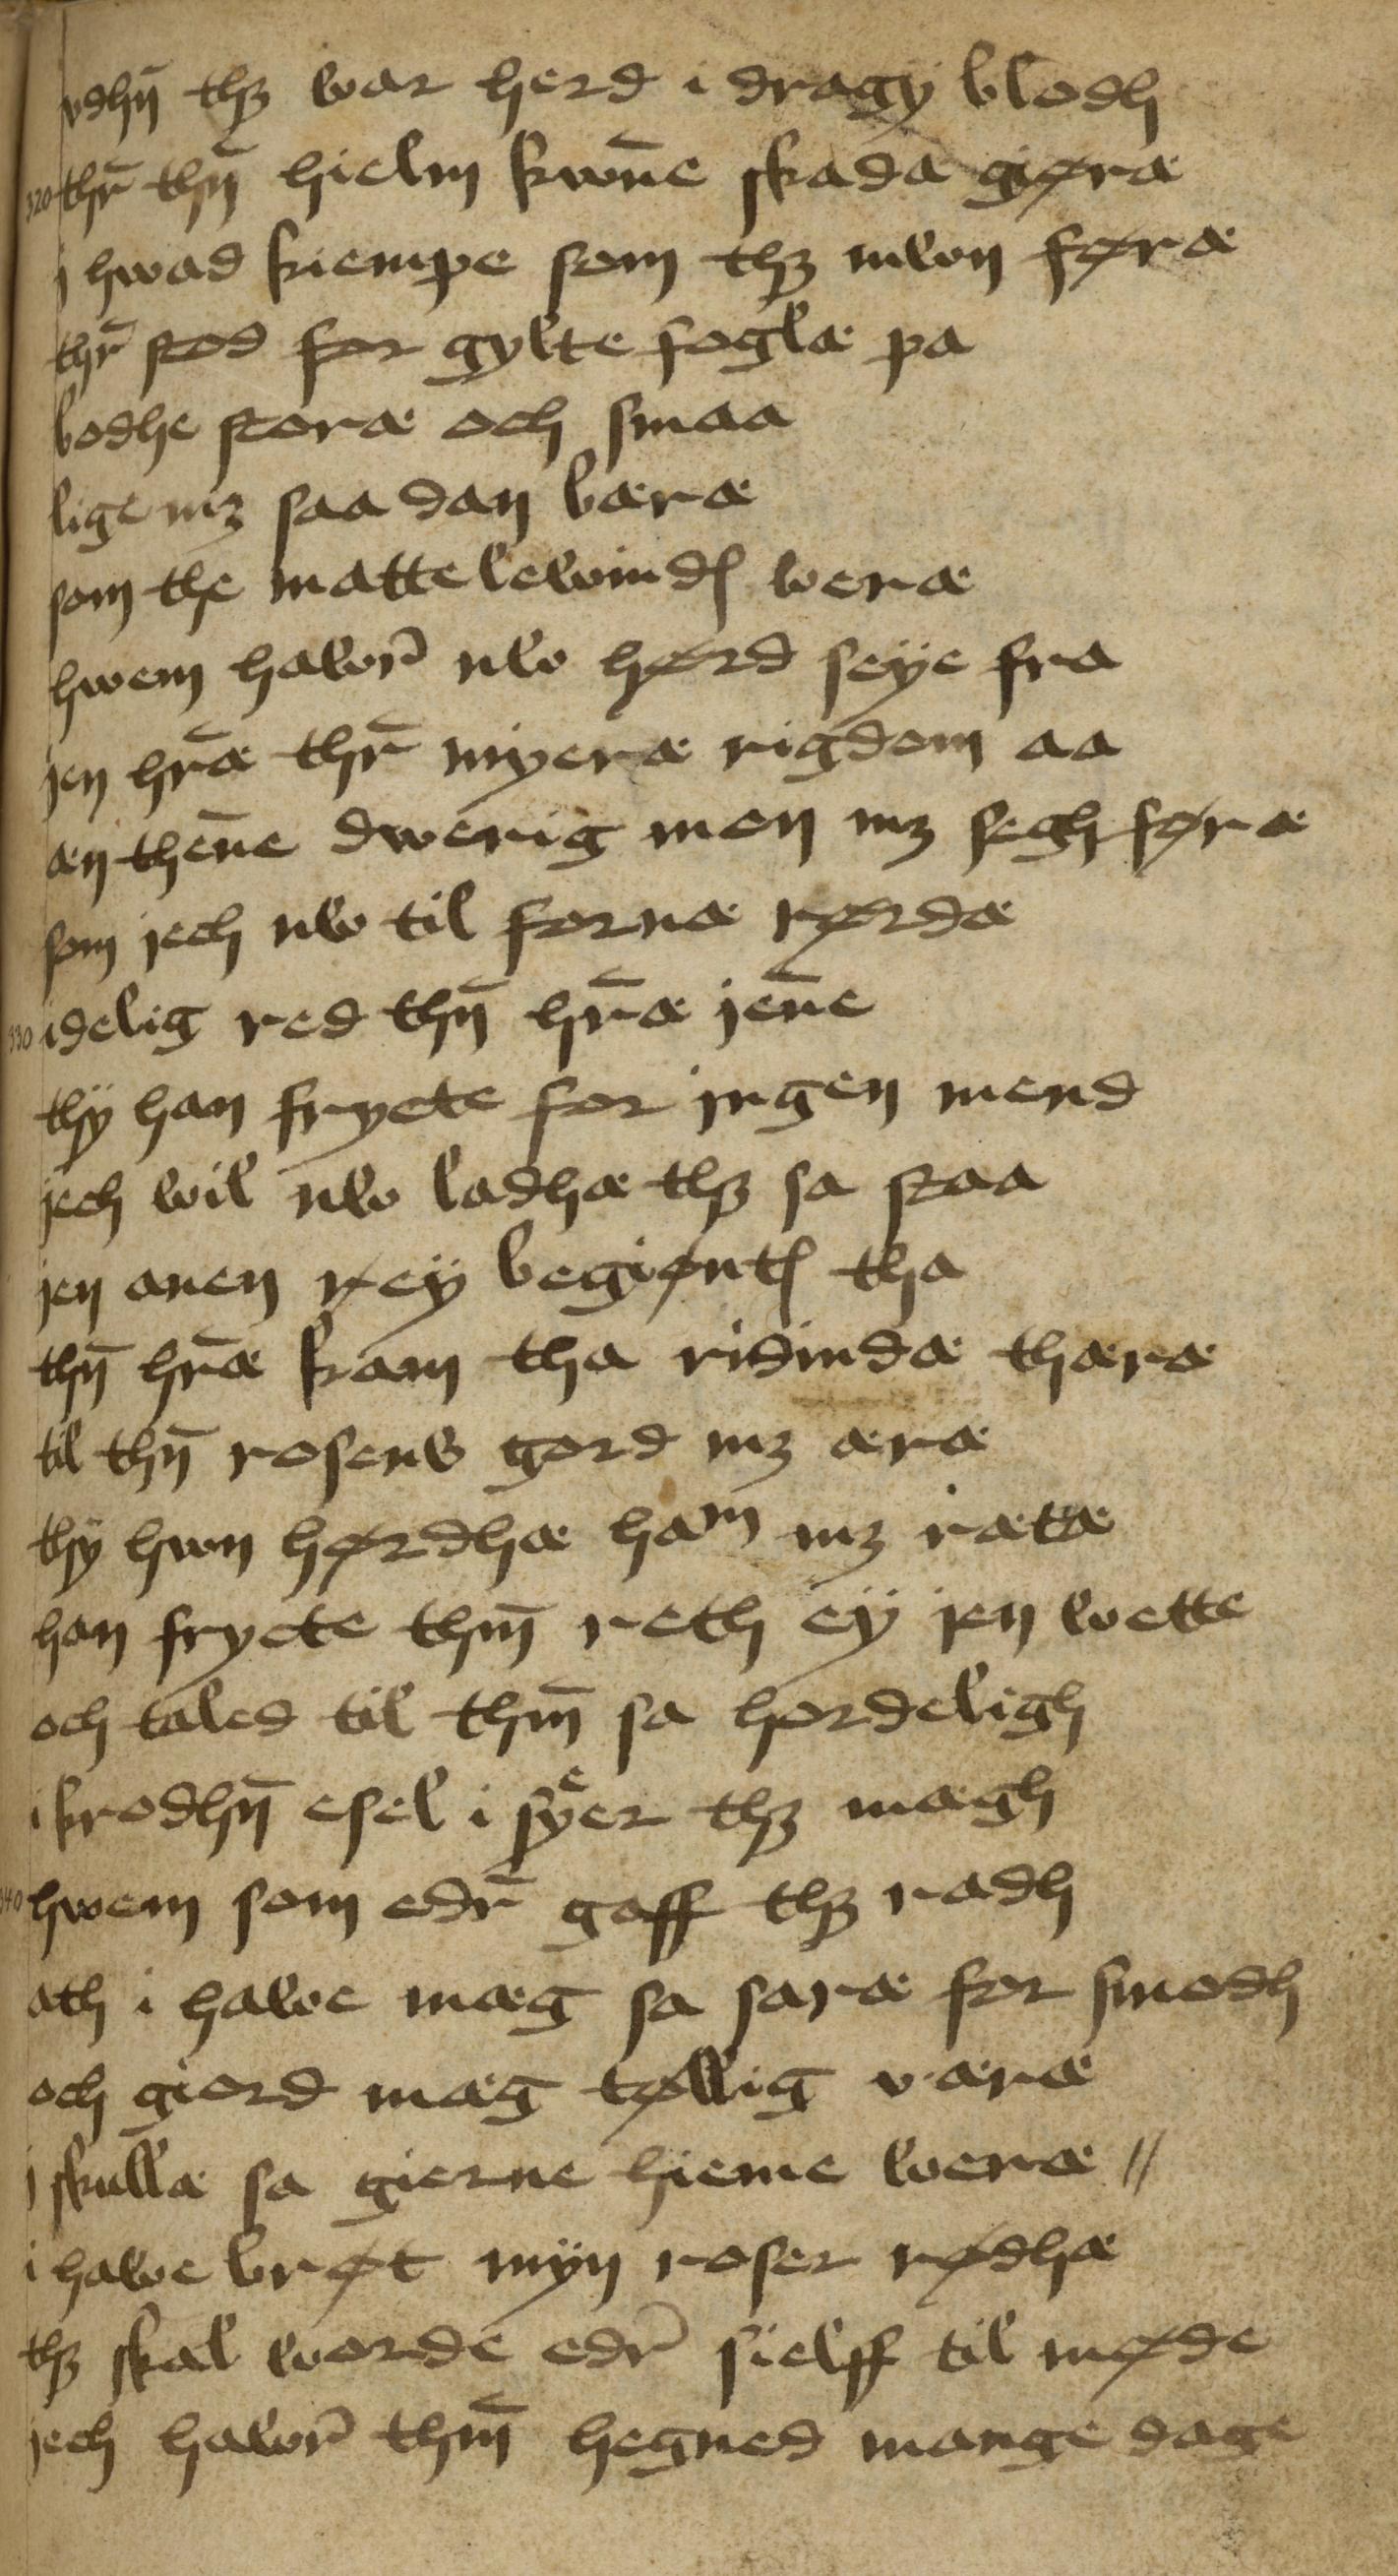 vdhn̄ thꝫ war herd i dragÿ blodh
320 thr̄ thn̄ hielm kwn̄e skada giøræ
j hwad kiempe som thꝫ mwn føræ
thr̄ stod for gylte foglæ pa
bodhe storæ och smaa
lige mꝫ saa dan bæræ
som the matte lewindꝭ weræ
hwem hawer̄ nw hørd seÿe fra
jen hr̄æ thr̄ myeræ rigdom aa
æn then̄e dwerig mon mꝫ segh føræ
som jech nw til fornæ rørdæ
330 idelig red thn̄ hr̄æ jen̄e
thÿ han frycte for jngen mend
jech wil nw ladhæ thꝫ sa staa
jen anen reÿ begiøntꝭ tha
thn̄ hr̄æ kam tha ridindæ thæræ
til thn̄ rosens gord mꝫ æræ
thÿ hwn hørdhæ ham mꝫ rætæ
han frycte thm̄ reth eÿ jen wette
och taled til thm̄ sa hordeligh
i krodhn̄ esel i sÿer thꝫ mægh
340 hwem som edr̄ gaff thꝫ radh
ath i hawe mæg sa saræ for smodh
och giord mæg tøllig væræ
j skullæ sa gierne hieme weræ //
i hawe brøt mÿn roser rødhæ
thꝫ skal worde edr̄ sielff til møde
jech hawer̄ thm̄ hegned mange dage